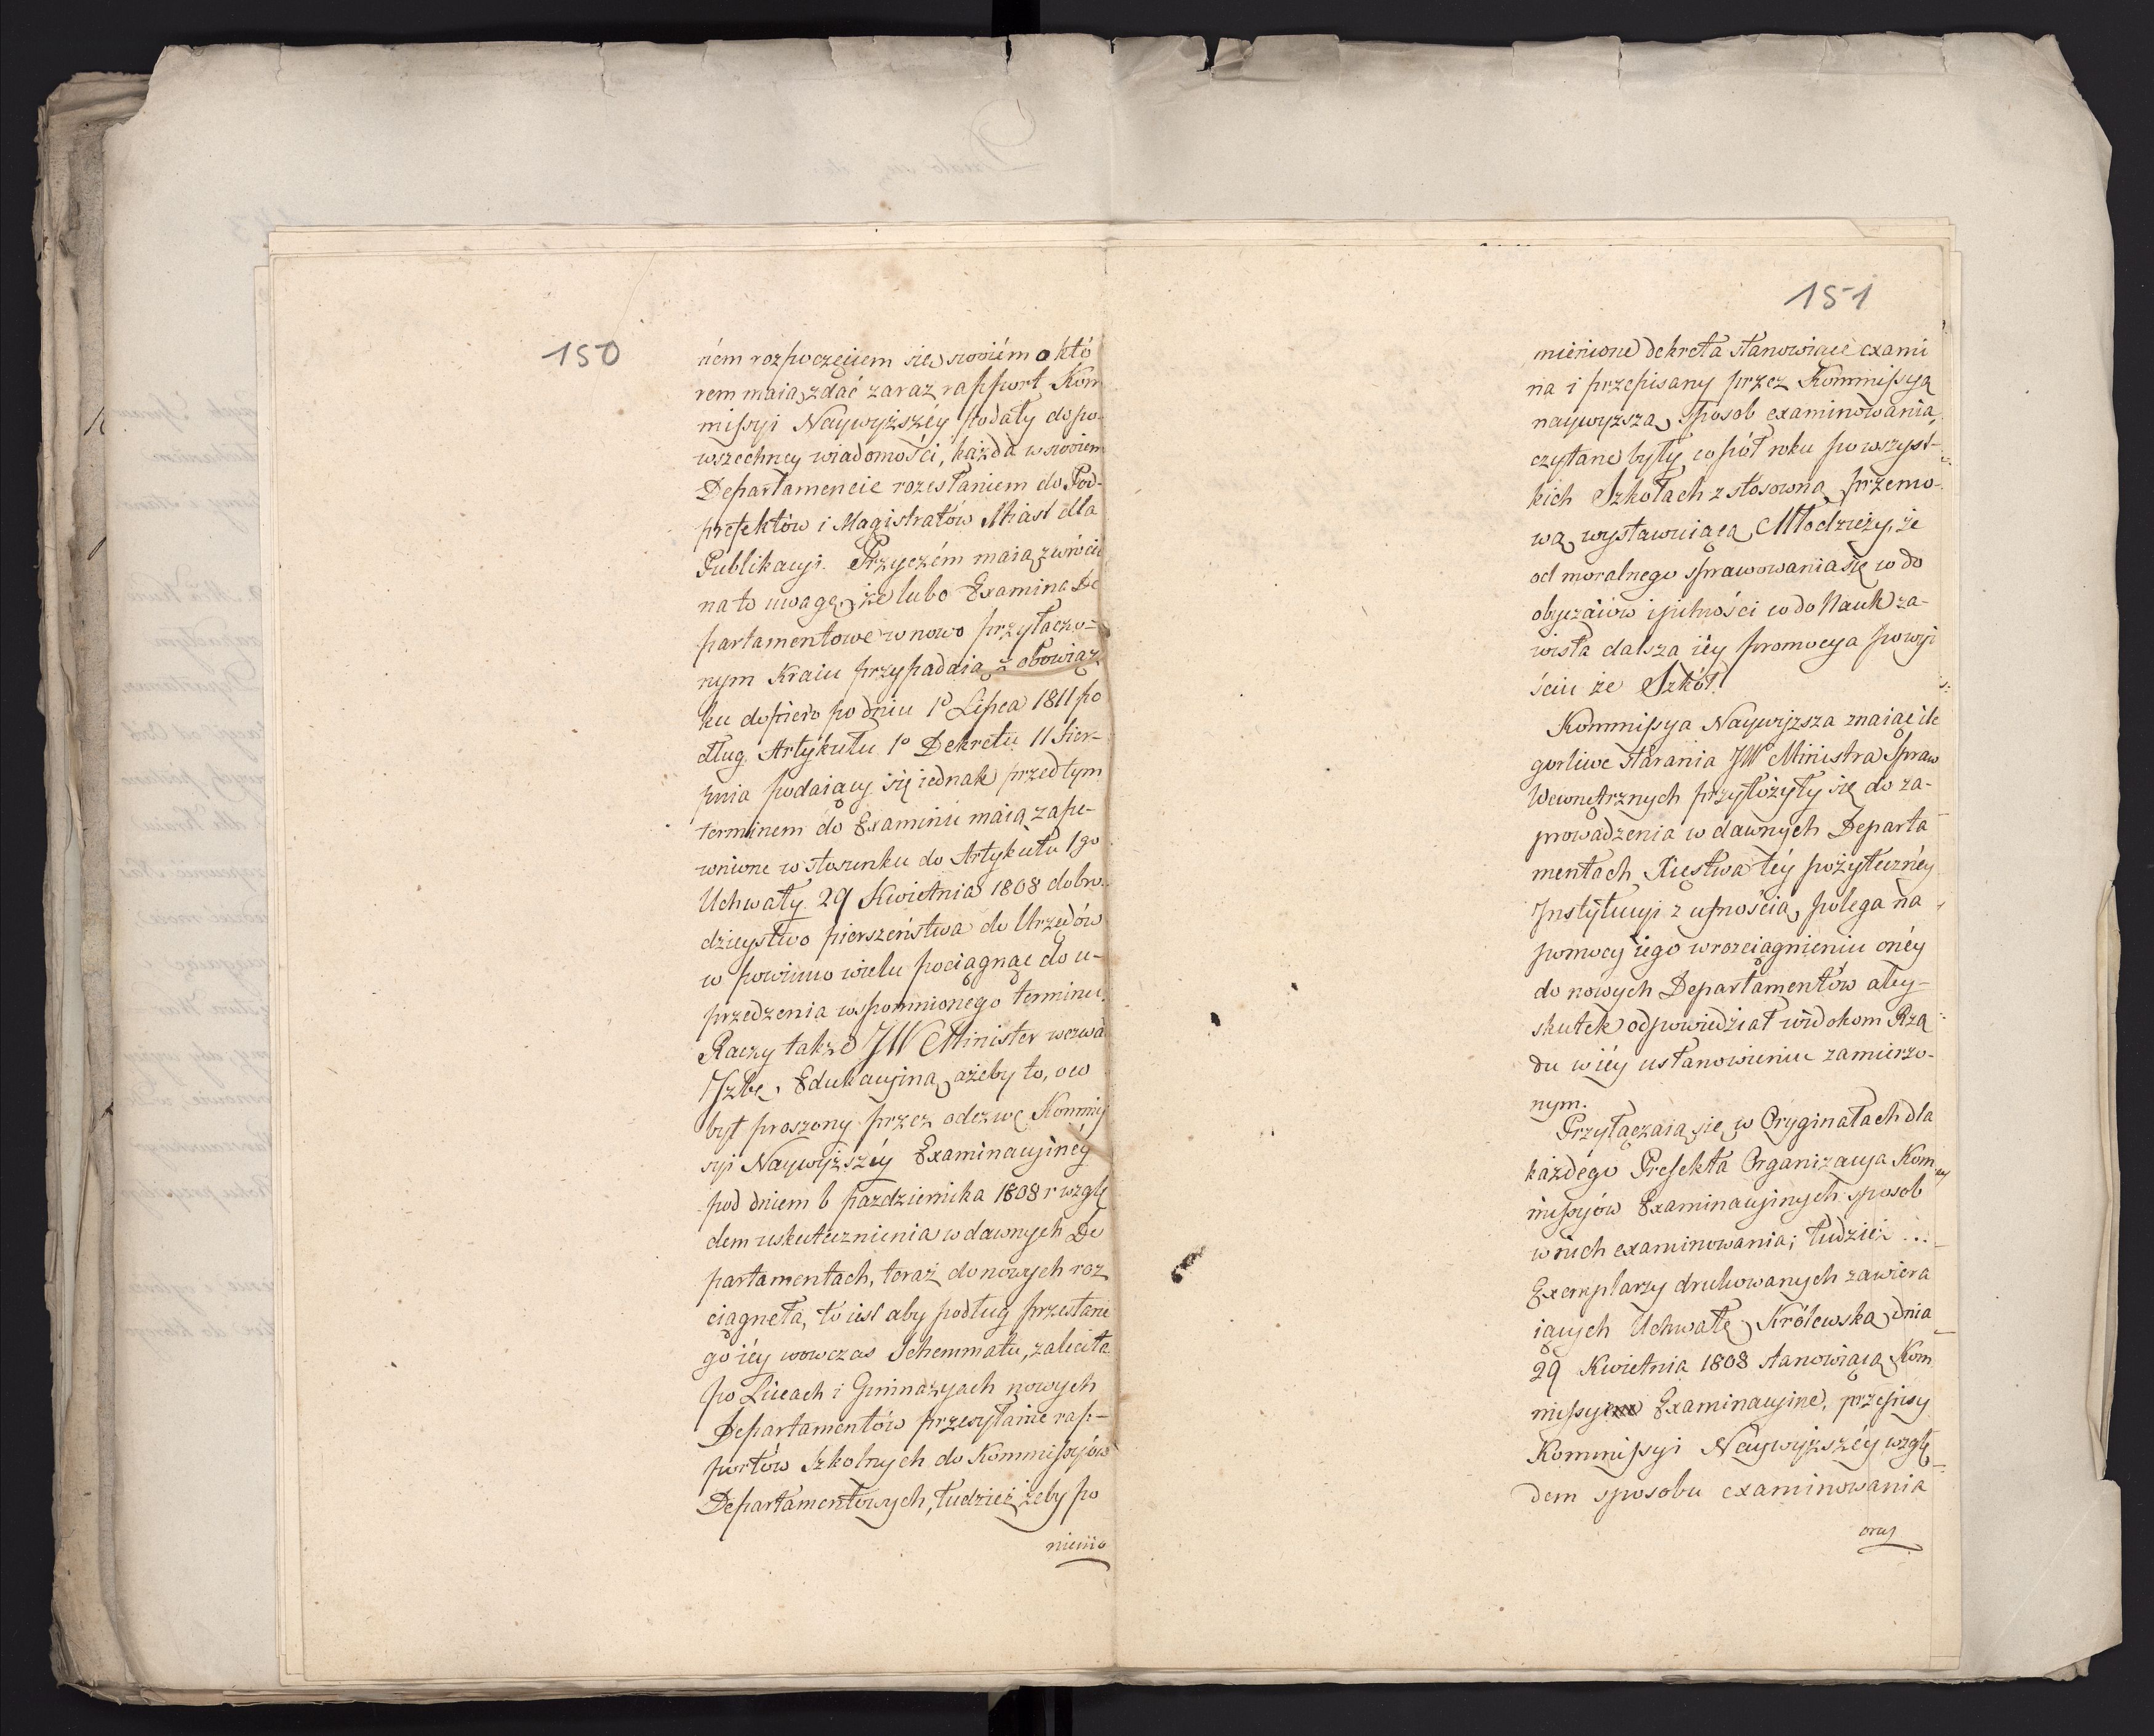 150
niem rozpoczęciem się swoiém o któ
rem maią zdać zaraz rapport Kom
missyi Naywyższéy podały do po-
wszechney wiadomości, każda w swoiem
Departamencie rozesłaniem do Pod-
prefektów i Magistratów Miast dla
Publikacyi. Przyczém maią zwrócić
na to uwagę, że lubo Examina De
partamentowe w nowo przyłączo=
nym Kraiu przypadaią z obowiąz
ku dopiero po dniu 1º Lipca 1811 po
dług Artykułu 1º Dekretu 11 Sier-
pnia podaiący się iednak przed tym
terminem do Examinu maią zape-
wnione w stosunku do Artykułu 1go
Uchwały 29 Kwietnia 1808 dobro
dzieystwo pierszeństwa do Urzędów
w powinno wielu pociągnąć do u-
przedzenia wspomnionego terminu.
Raczy także JW Minister wezwać
Izbę Edukacyiną ażeby to, o co
był proszony przez odezwę Kommis
syi Naywyższéy Examinacyinéy
pod dniem 6 października 1808 r wzglę
dem uskutecznienia w dawnych De
partamentach, teraz do nowych roz
ciągnęła, to iest aby podług przesłane
go iéy wowczas Schemmatu, zaleciła
po Liceach i Gimnazyach nowych
Departamentów przesyłanie rap-
portów Szkolnych do Kommissyiów
Departamentowych, tudzież żeby po
nienio
151
mienione Dekreta stanowiące exami
na i przepisany przez Kommissyą
naywyższą sposob examinowania,
czytane były co pół roku po wszyst-
kich Szkołach z stosowną przemo-
wą wystawuiącą Młodzieży, że
od moralnego sprawowania się co do
obyczaiów i pilności co do Nauk za-
wisła dalsza iéy promocya po wyi
ściu ze Szkół.
Kommissya Naywyższa znaiąc ile
gorliwe starania JW Ministra Spraw
Wewnętrznych przyłożyły się do za-
prowadzenia w dawnych Departa
mentach Xięstwa téy pożytecznéy
Instytucyi z ufnością polega na
pomocy iego w rozciągnieniu onéy
do nowych Departamentów aby-
skutek odpowiedział widokom Rzą
du w iéy ustanowieniu zamierzo-
nym.
Przyłączaią się w Oryginałach dla
każdego Prefekta Organizacya Kom
missyów Examinacyinych sposob
w nich examinowania; tudzież ...
Exemplarzy drukowanych zawiera
iących Uchwałę Królewską dnia
29 Kwietnia 1808 stanowiącą Kom
missye Examinacyine, przepisy
Kommissyi Naywyższéy wzglę
dem sposobu examinowania
oraz